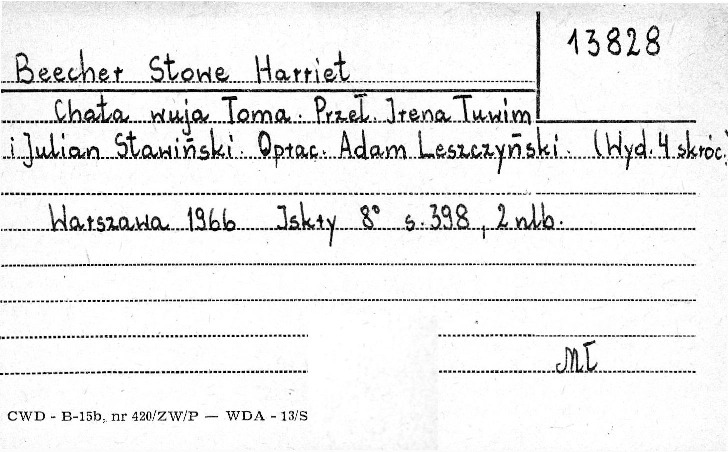 13828
Beecher Stowe Harriet
Chata wuja Toma. Przeł. Irena Tuwim
i Julian Stawiński. Oprac. Adam Leszczyński. (Wyd. 4 skróc.
Warszawa 1966 Iskry 8° s. 398, 2 nlb.
MŁ
CWD - B-15b, nr 420/ZW/P — WDA - 13/S